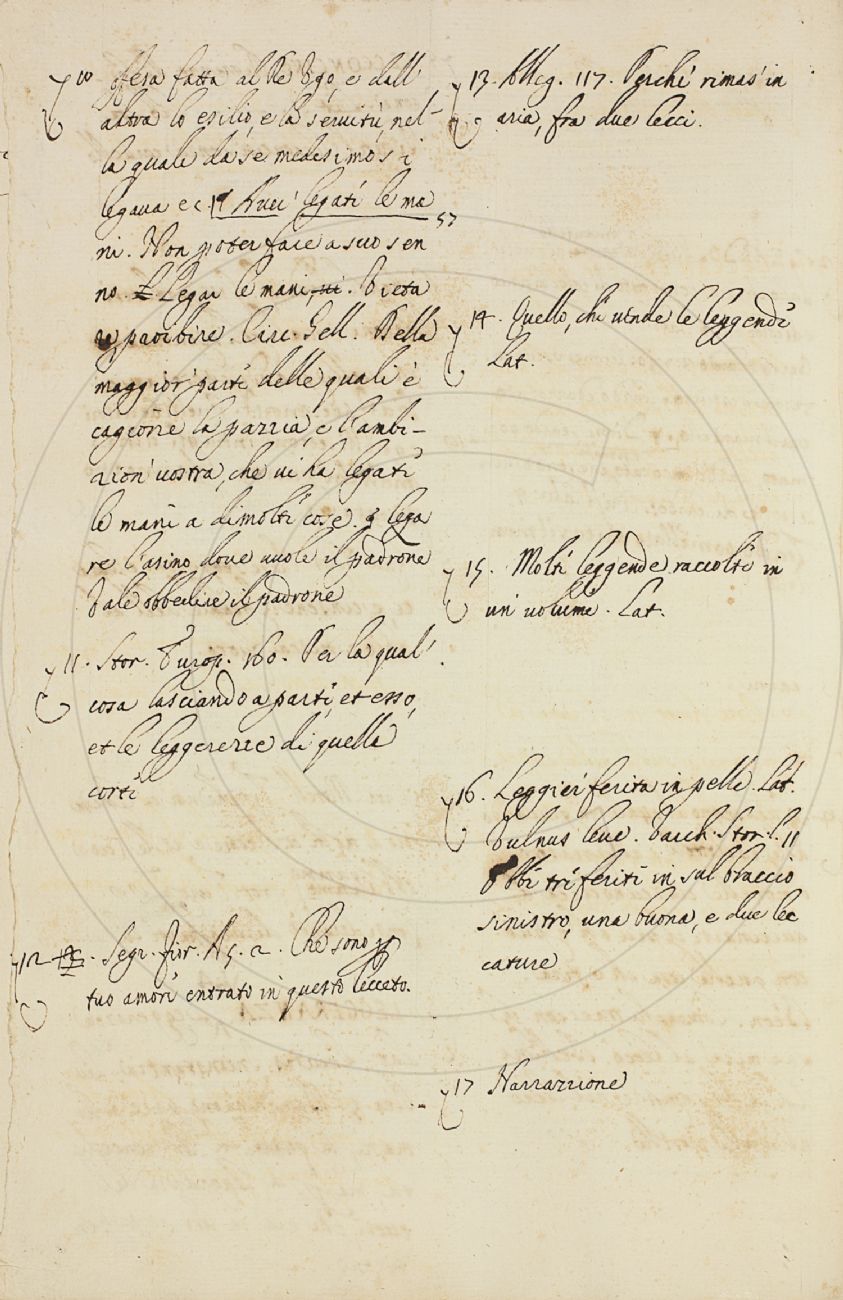 10 offesa fatta al Re Ugo, e dall'
altra lo esilio, e la servitù, nel-
la quale da se medesimo si
legava ec. ¶ Aver legati le ma
57
ni. Non poter fare a suo sen
no. Legar le mani. Vieta
re proibire. Circ. Gell. Della
maggior parte delle quali è
cagione la pazzia, e l'ambi-
zion vostra, che vi ha legati
le mani a dimolte cose. Lega
re l'asino dove vuole il padrone
Vale obbedire il padrone
11. Stor. Europ. 160. Per la qual'
cosa lasciando a parte, et esso,
et le leggerezze di quella
corte
12. Segr. Fior. As. 2. Che sono
tuo amore entrato in questo lecceto.
13. Alleg. 117. Perché rimas' in
aria, fra due lecci.
14. Quello, che vende le leggende
Lat.
15. Molte leggende raccolte in
un volume. Lat.
16. Leggier ferita in pelle. Lat.
Vulnus leve. Varch. Stor. l. 11
Ebbe tre ferite in sul braccio
sinistro, una buona, e due lec
cature
17 Narrazione